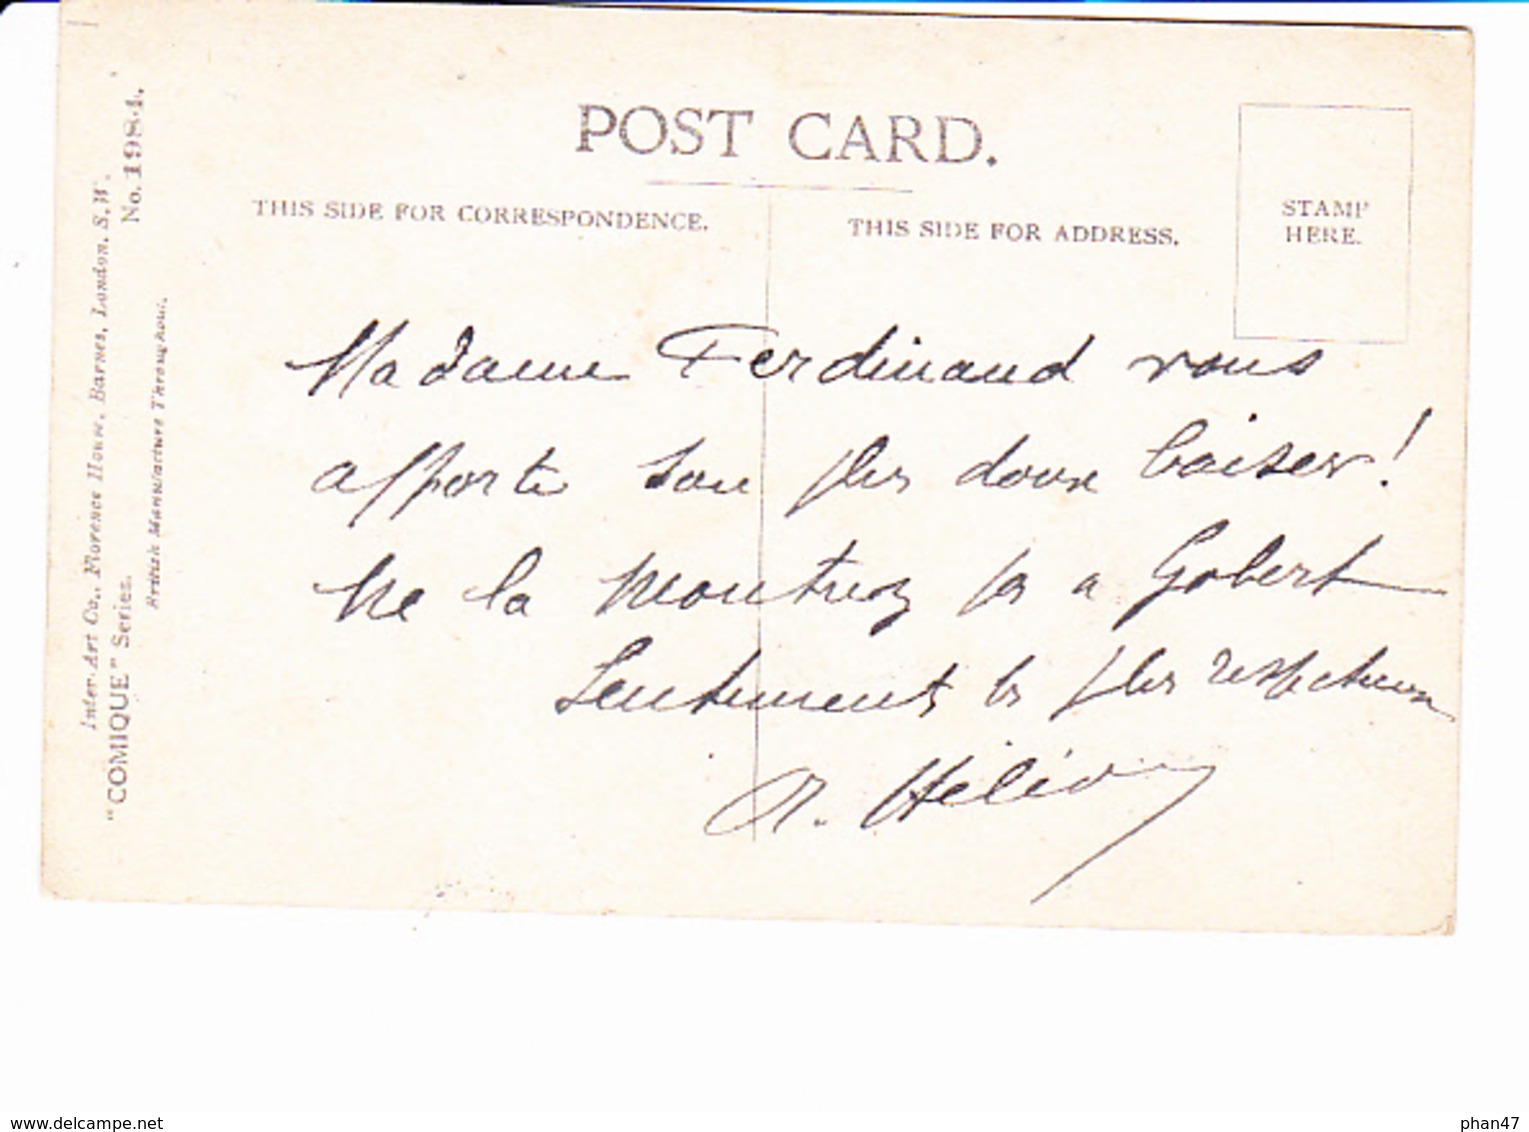 POST CARD.
THIS SIDE FOR CORRESPONDENCE.
THIS SIDE FOR ADDRESS.
STAMP
HERE.
Inter-Art Co., Florence House, Barnes, London. S.W.
"COMIQUE" Series.
No. 1984.
British Manufacture Throughout.
Madame Ferdinand vous
apporte son plus doux baiser!
Ne la montrez pas a Gobert
Sentiments les plus respectueux
www.delcampe.net
phan47